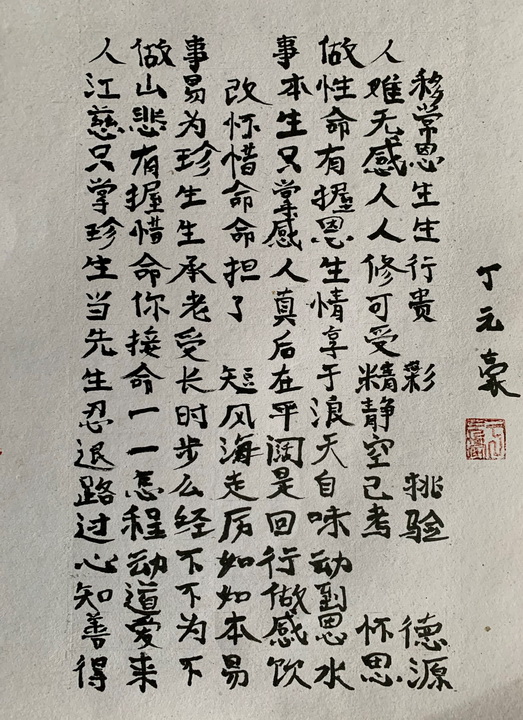 人做事事做人
江山易改本性难移
慈悲为怀生命无常
只有珍惜只有感恩
掌握生命掌握人生
珍惜生命感恩人生
生命承担人生修行
当你老了真情可贵
先接受后享受
生命长短在于精彩
忍一时风平浪静
退一步海阔天空
路怎么走是自己挑
过程经厉回味考验
心动不如行动
知道不如做到
善爱为本感恩怀德
得来不易饮水思源
丁元豪